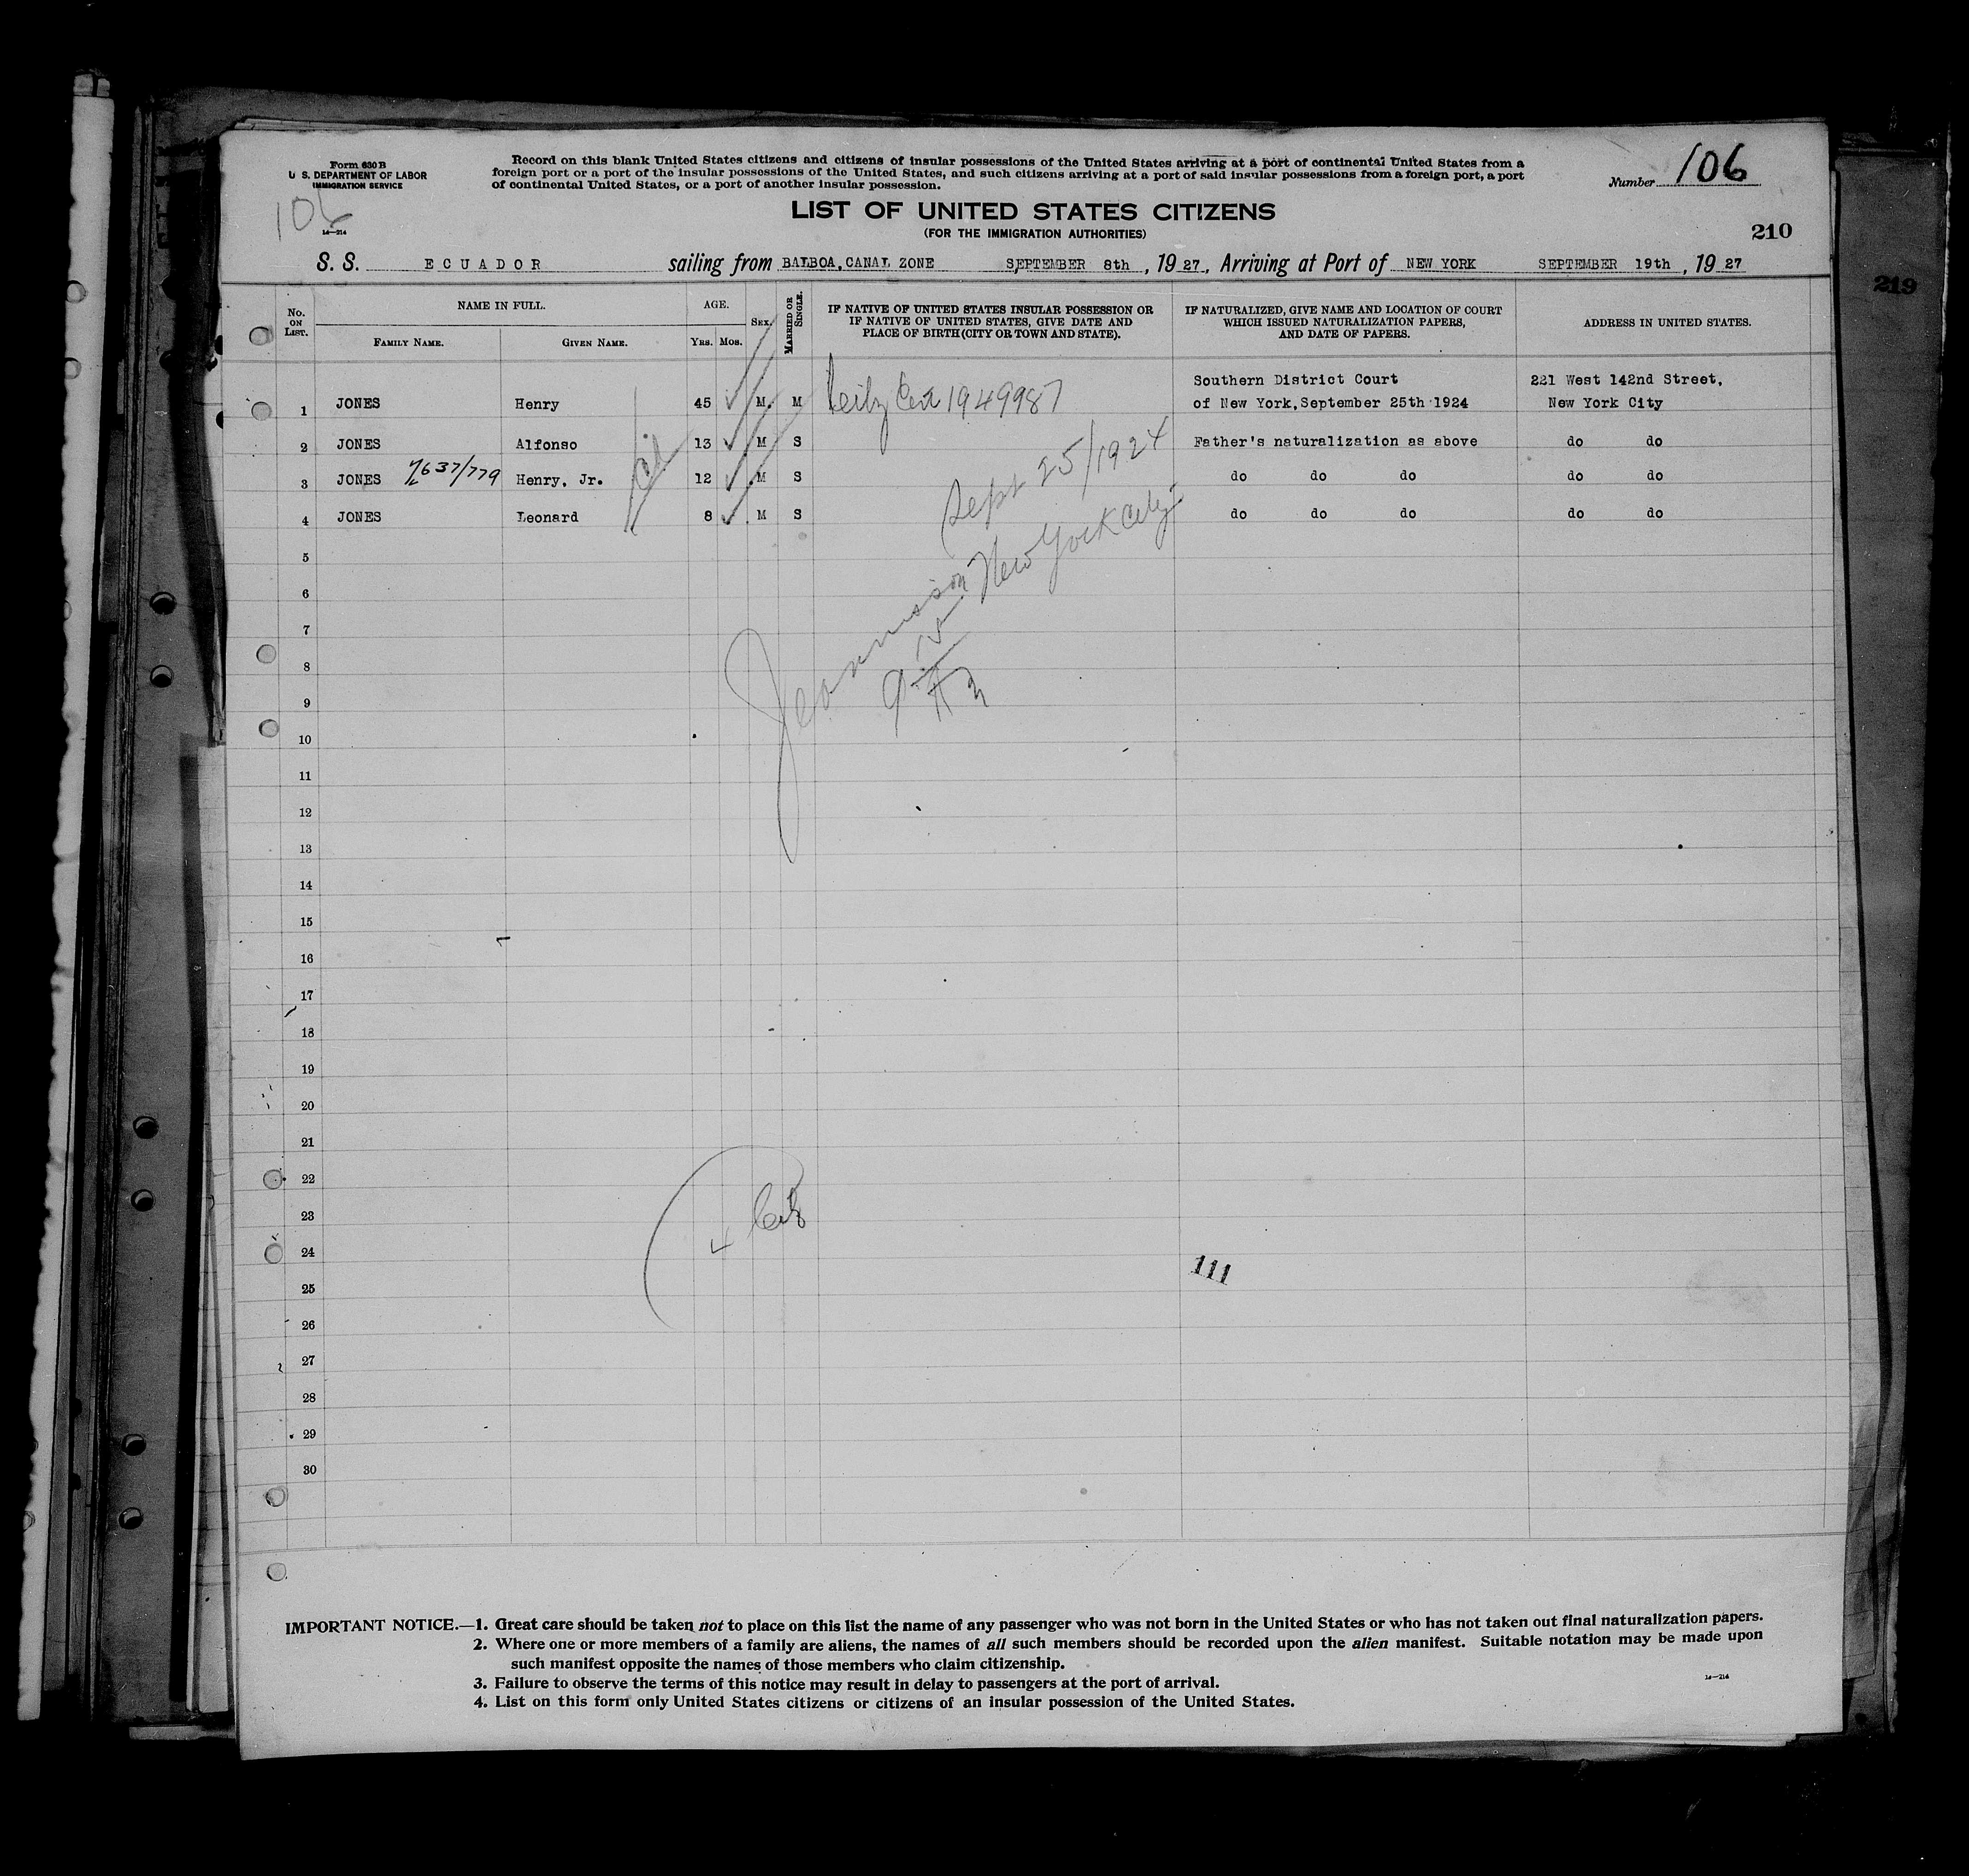 Form 630 B
U S. DEPARTMENT OF LABOR
IMMIGRATION SERVICE
106
14—214
Record on this blank United States citizens and citizens of insular possessions of the United States arriving at a port of continental United States from a
foreign port or a port of the insular possessions of the United States, and such citizens arriving at a port of said insular possessions from a foreign port, a port
of continental United States, or a port of another insular possession.
Number 106
LIST OF UNITED STATES CITIZENS
(FOR THE IMMIGRATION AUTHORITIES)
210
219
S. S. ECUADOR sailing from BALBOA, CANAL ZONE SEPTEMBER 8th, 1927, Arriving at Port of NEW YORK SEPTEMBER 19th, 1927
No. ON LIST.
NAME IN FULL.
FAMILY NAME.
GIVEN NAME.
AGE.
YRS. MOS.
SEX.
MARRIED OR SINGLE.
IF NATIVE OF UNITED STATES INSULAR POSSESSION OR
IF NATIVE OF UNITED STATES, GIVE DATE AND
PLACE OF BIRTH (CITY OR TOWN AND STATE).
IF NATURALIZED, GIVE NAME AND LOCATION OF COURT
WHICH ISSUED NATURALIZATION PAPERS,
AND DATE OF PAPERS.
ADDRESS IN UNITED STATES.
Southern District Court 221 West 142nd Street,
1 JONES Henry 45 M M 1949987 of New York, September 25th 1924 New York City
2 JONES Alfonso 13 M S Father's naturalization as above do do
3 JONES 637/779 Henry, Jr. 12 M S do do do do do
4 JONES Leonard 8 M S do do do do do
Sept 25/1924
New York City
5
6
7
8
9
10
11
12
13
14
15
16
17
18
19
20
21
22
23
24
25
26
27
28
29
30
111
IMPORTANT NOTICE.—1. Great care should be taken not to place on this list the name of any passenger who was not born in the United States or who has not taken out final naturalization papers.
2. Where one or more members of a family are aliens, the names of all such members should be recorded upon the alien manifest. Suitable notation may be made upon
such manifest opposite the names of those members who claim citizenship.
3. Failure to observe the terms of this notice may result in delay to passengers at the port of arrival.
4. List on this form only United States citizens or citizens of an insular possession of the United States.
14—214